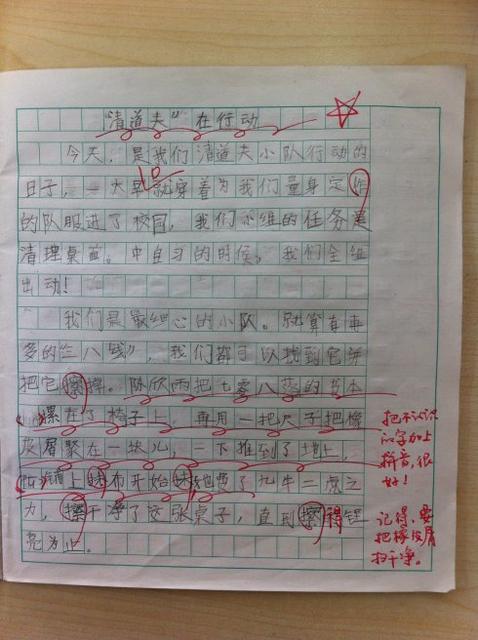 “清道夫”在行动
今天，是我们清道夫小队行动的
日子，一大早就穿着为我们量身定作
的队服进了校园，我们小组的任务是
清理桌面。中自习的时候，我们全组
出动！
我们是最细心的小队。就算有再
多的“三八线”，我们都可以找到它并
把它擦掉。陈欣雨把七零八落的书本
摞在了椅子上，再用一把尺子把橡
皮屑聚在一块儿，一下推到了地上，
上抹布开始抹，也费了九牛二虎之
力，擦干净了这张桌子，直到擦得锃
亮为止。
把不认识
的字加上
拼音，很
好！
记得，要
把橡皮屑
扫干净。